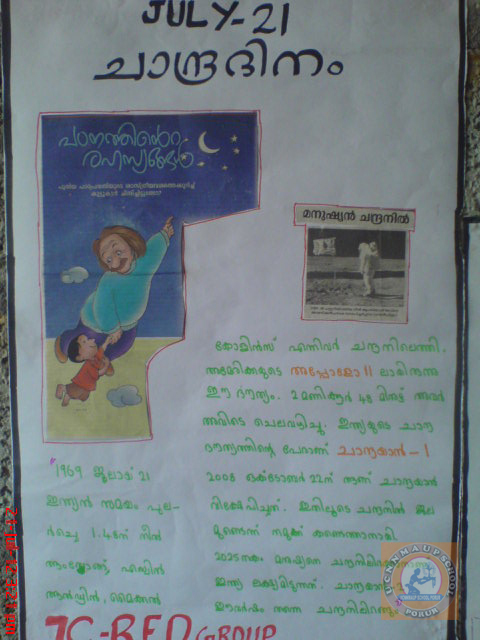 JULY-21
ചാന്ദ്രദിനം
പഠനത്തിന്റെ
രഹസ്യങ്ങൾ
മനുഷ്യൻ ചന്ദ്രനിൽ
"1969 ജൂലായ് 21
ഇന്ത്യൻ സമയം പുല-
ർച്ചെ 1.48ന് നീൽ
ആംസ്ട്രോങ്ങ്, എഡ്വിൻ
ആൽഡ്രിൻ, മൈക്കൽ
കോളിൻസ് എന്നിവർ ചന്ദ്രനിലെത്തി.
അമേരിക്കയുടെ അപ്പോളോ 11 ലായിരുന്നു
ഈ ദൗത്യം. 2 മണിക്കൂർ 48 മിനുട്ട് അവർ
അവിടെ ചെലവഴിച്ചു. ഇന്ത്യയുടെ ചാന്ദ്ര
ദൗത്യത്തിന്റെ പേരാണ് ചാന്ദ്രയാൻ-1
2008 ഒക്ടോബർ 22ന് ആണ് ചാന്ദ്രയാൻ
വിക്ഷേപിച്ചത്. ഇതിലൂടെ ചന്ദ്രനിൽ ജല
മുണ്ടെന്ന് നമുക്ക് കണ്ടെത്താനായി
2025നകം മനുഷ്യനെ ചന്ദ്രനിലിറക്കാനാണ്
ഇന്ത്യ ലക്ഷ്യമിടുന്നത്. ചാന്ദ്രയാൻ-2
ഈവർഷം തന്നെ ചന്ദ്രനിലിറങ്ങും"
7C-RED GROUP